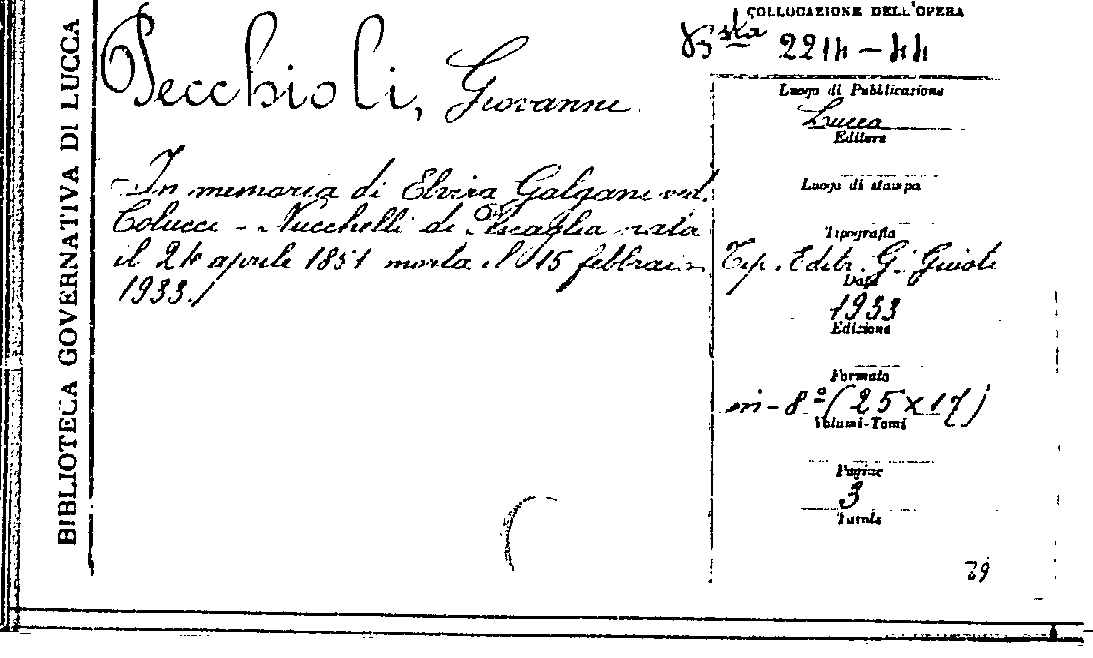 BIBLIOTECA GOVERNATIVA DI LUCCA
COLLOCAZIONE DELL'OPERA
Bsta 2214-44
Pecchioli, Giovanni
Luogo di Pubblicazione
Lucca
Editore
In memoria di Elvira Galgani ved.
Colucci - Nucchelli di Pescaglia nata
il 24 aprile 1851 morta il 15 febbraio
1933.
Luogo di stampa
Tipografia
Tip. Editr. G. Giusti
Data
1933
Edizione
Formato
in-8º (25x17)
Volumi-Tomi
Pagine
3
Tavole